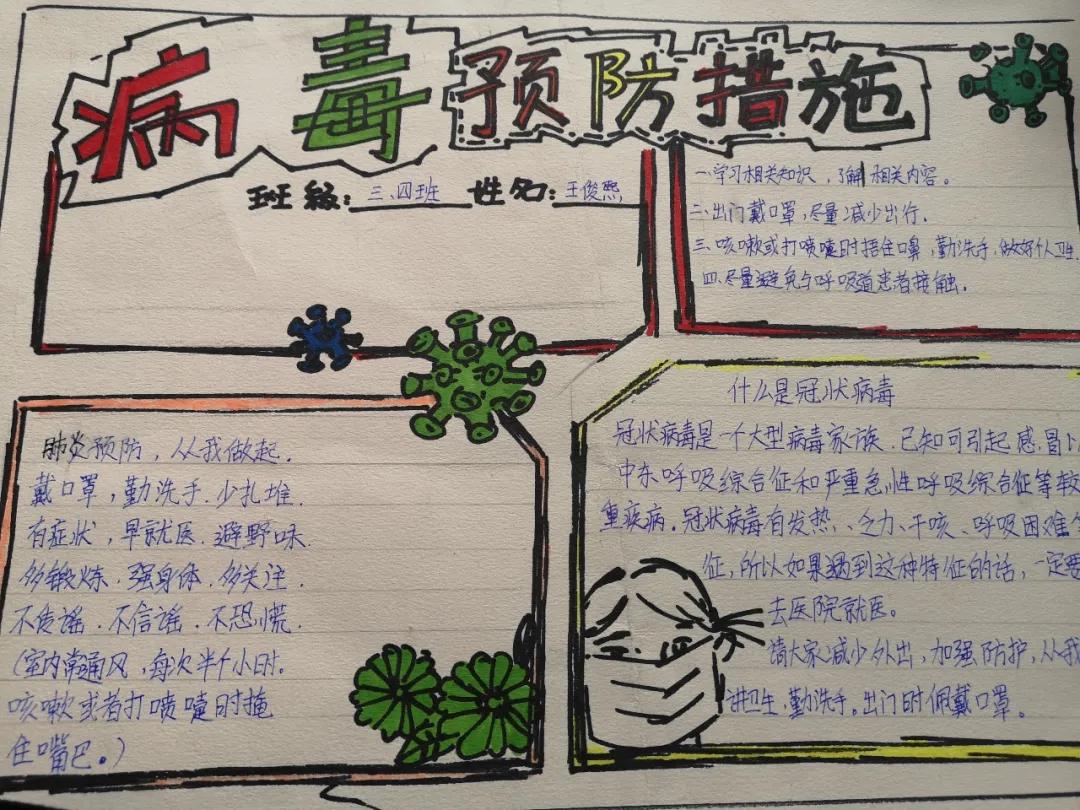 病毒预防措施
班级:三.四班 姓名:王俊熙
一.学习相关知识,了解相关内容。
二.出门戴口罩,尽量减少出行.
三.咳嗽或打喷嚏时捂住口鼻,勤洗手.做好个人卫生.
四.尽量避免与呼吸道患者接触.
肺炎预防,从我做起.
戴口罩,勤洗手.少扎堆.
有症状,早就医.避野味.
多锻炼.强身体.多关注.
不传谣.不信谣.不恐慌.
(室内常通风,每次半个小时.
咳嗽或者打喷嚏时掩
住嘴巴。)
什么是冠状病毒
冠状病毒是一个大型病毒家族.已知可引起感冒
中东呼吸综合征和严重急性呼吸综合征等较
重疾病.冠状病毒有发热、乏力、干咳、呼吸困难等
征,所以如果遇到这种特征的话,一定要
去医院就医。
请大家减少外出,加强防护,从我
讲卫生,勤洗手。出门时佩戴口罩。